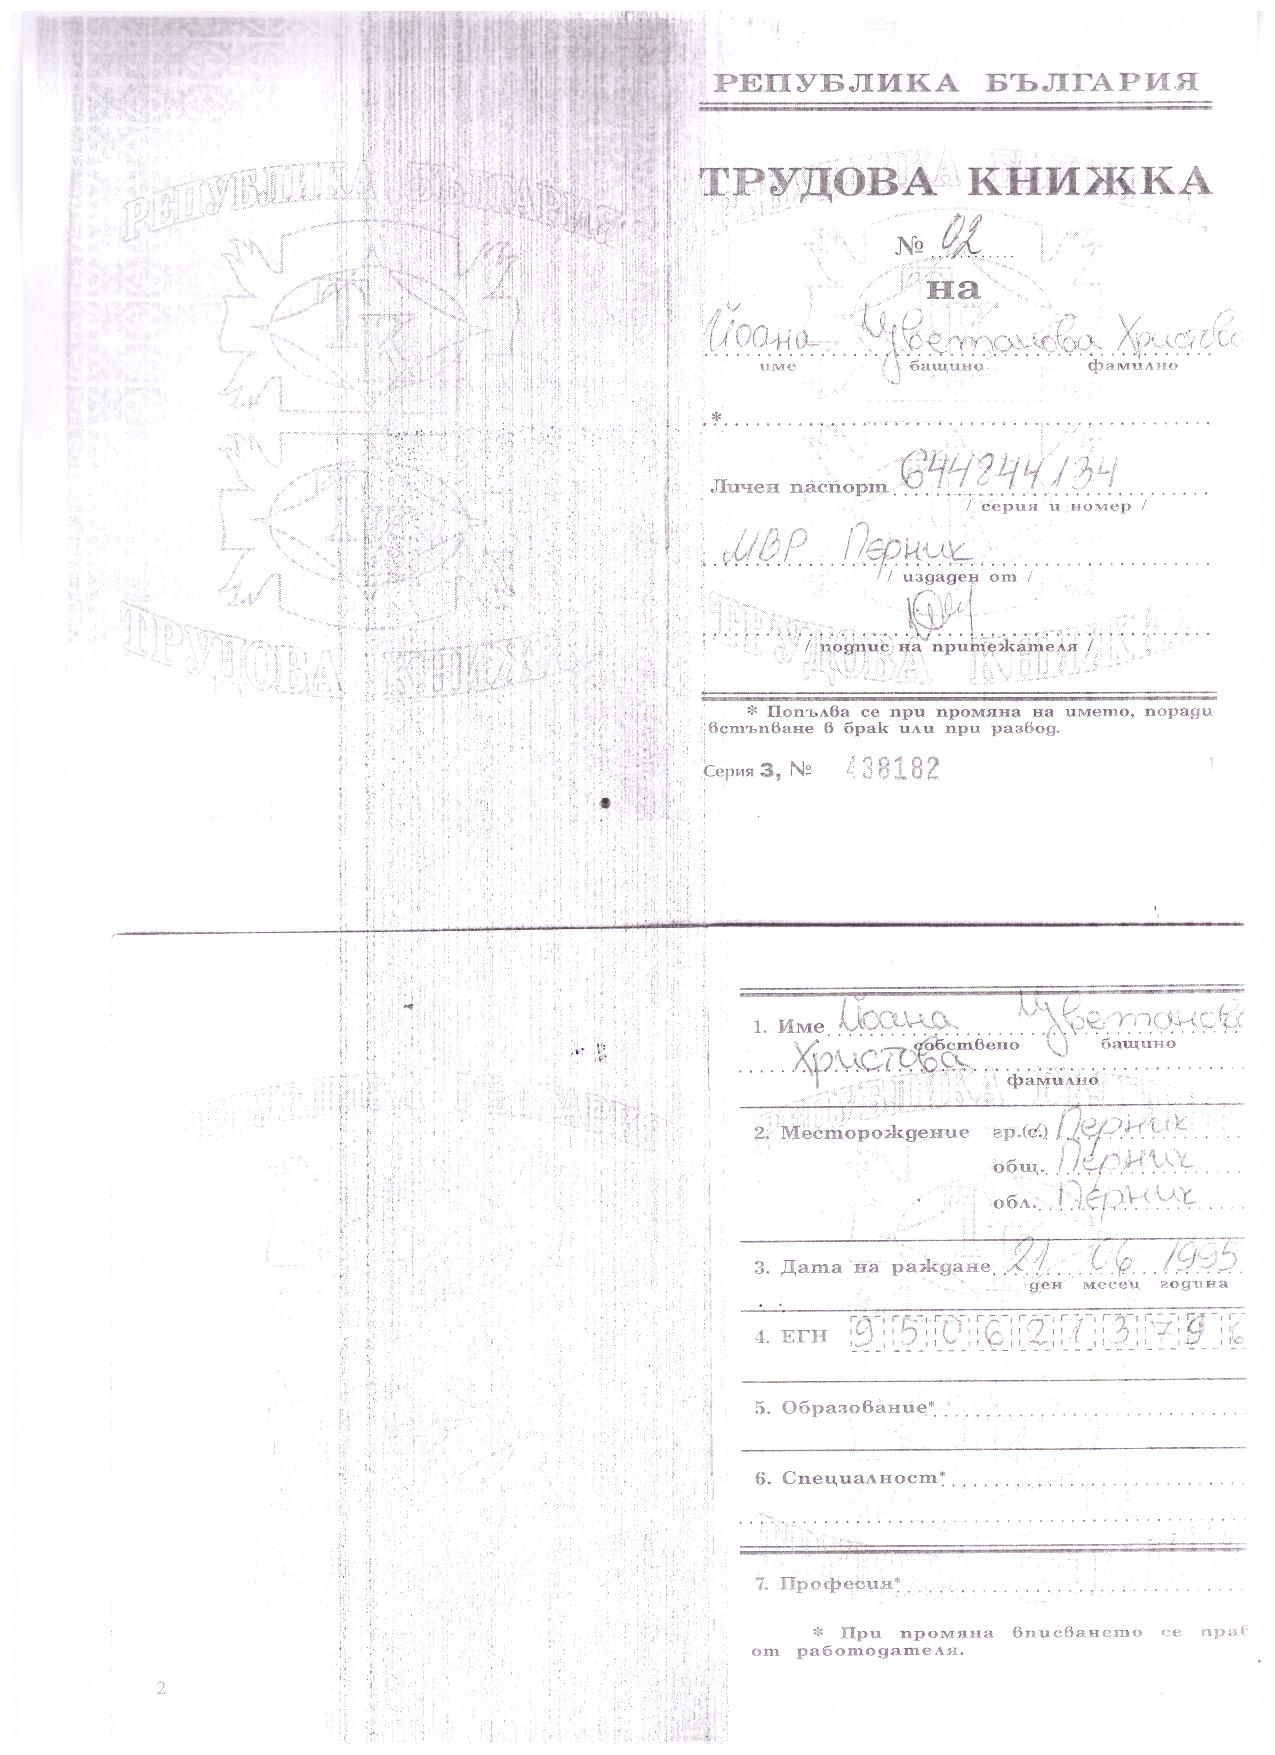 РЕПУБЛИКА БЪЛГАРИЯ
РЕПУБЛИКА БЪЛГАРИЯ
ТК
ТК
ТРУДОВА КНИЖКА
ТРУДОВА КНИЖКА
№ 02
на
Йоана Цветанова Христова
име бащино фамилно
*
Личен паспорт 644844134
/ серия и номер /
МВР Перник
/ издаден от /
/ подпис на притежателя /
* Попълва се при промяна на името, поради
встъпване в брак или при развод.
Серия 3, № 438182
1
1. Име Йоана Цветанова
собствено бащино
Христова
фамилно
2. Месторождение гр.(с.) Перник
общ. Перник
обл. Перник
3. Дата на раждане 21 06 1995
ден месец година
4. ЕГН 950621379
5. Образование*
6. Специалност*
7. Професия*
* При промяна вписването се прав
от работодателя.
2